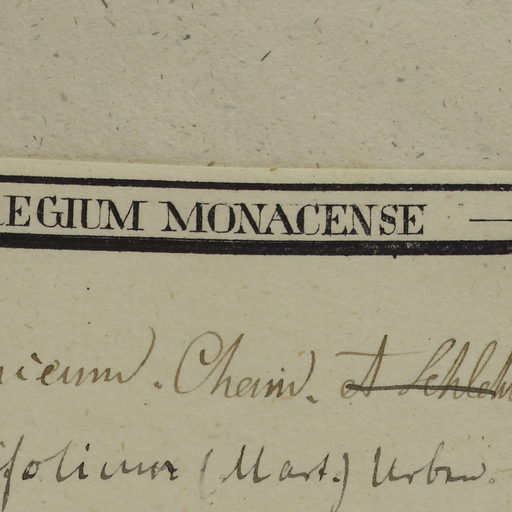 REGIUM MONACENSE —
niceum. Cham. & Schlecht
ifolium (Mart.) Urban.